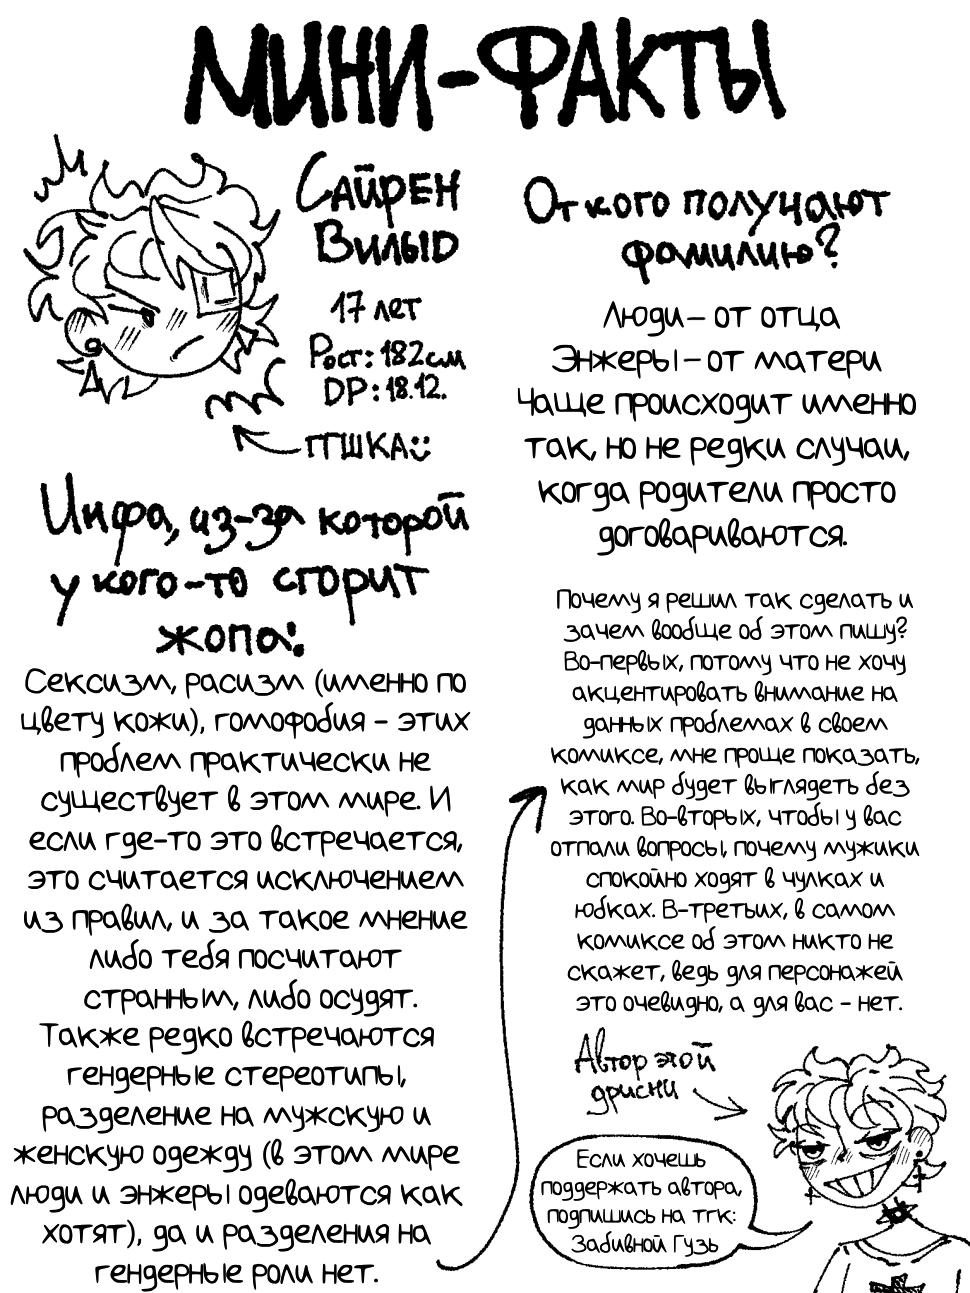 МИНИ-ФАКТЫ
САЙРЕН
ВИЛЫD
17 лет
Рост: 182см
DP: 18.12.
ПТШКА
Инфа, из-за которой
у кого-то сгорит
жопа:
Сексизм, расизм (именно по
цвету кожи), гомофобия - этих
проблем практически не
существует в этом мире. И
если где-то это встречается,
это считается исключением
из правил, и за такое мнение
либо тебя посчитают
странным, либо осудят.
Также редко встречаются
гендерные стереотипы,
разделение на мужскую и
женскую одежду (в этом мире
люди и энжеры одеваются как
хотят), да и разделения на
гендерные роли нет.
От кого получают
фамилию?
Люди - от отца
Энжеры - от матери
Чаще происходит именно
так, но не редки случаи,
когда родители просто
договариваются.
Почему я решил так сделать и
зачем вообще об этом пишу?
Во-первых, потому что не хочу
акцентировать внимание на
данных проблемах в своем
комиксе, мне проще показать,
как мир будет выглядеть без
этого. Во-вторых, чтобы у вас
отпали вопросы, почему мужики
спокойно ходят в чулках и
юбках. В-третьих, в самом
комиксе об этом никто не
скажет, ведь для персонажей
это очевидно, а для вас - нет.
Автор этой
дрисни
Если хочешь
поддержать автора,
подпишись на тгк:
Забивной Гузь